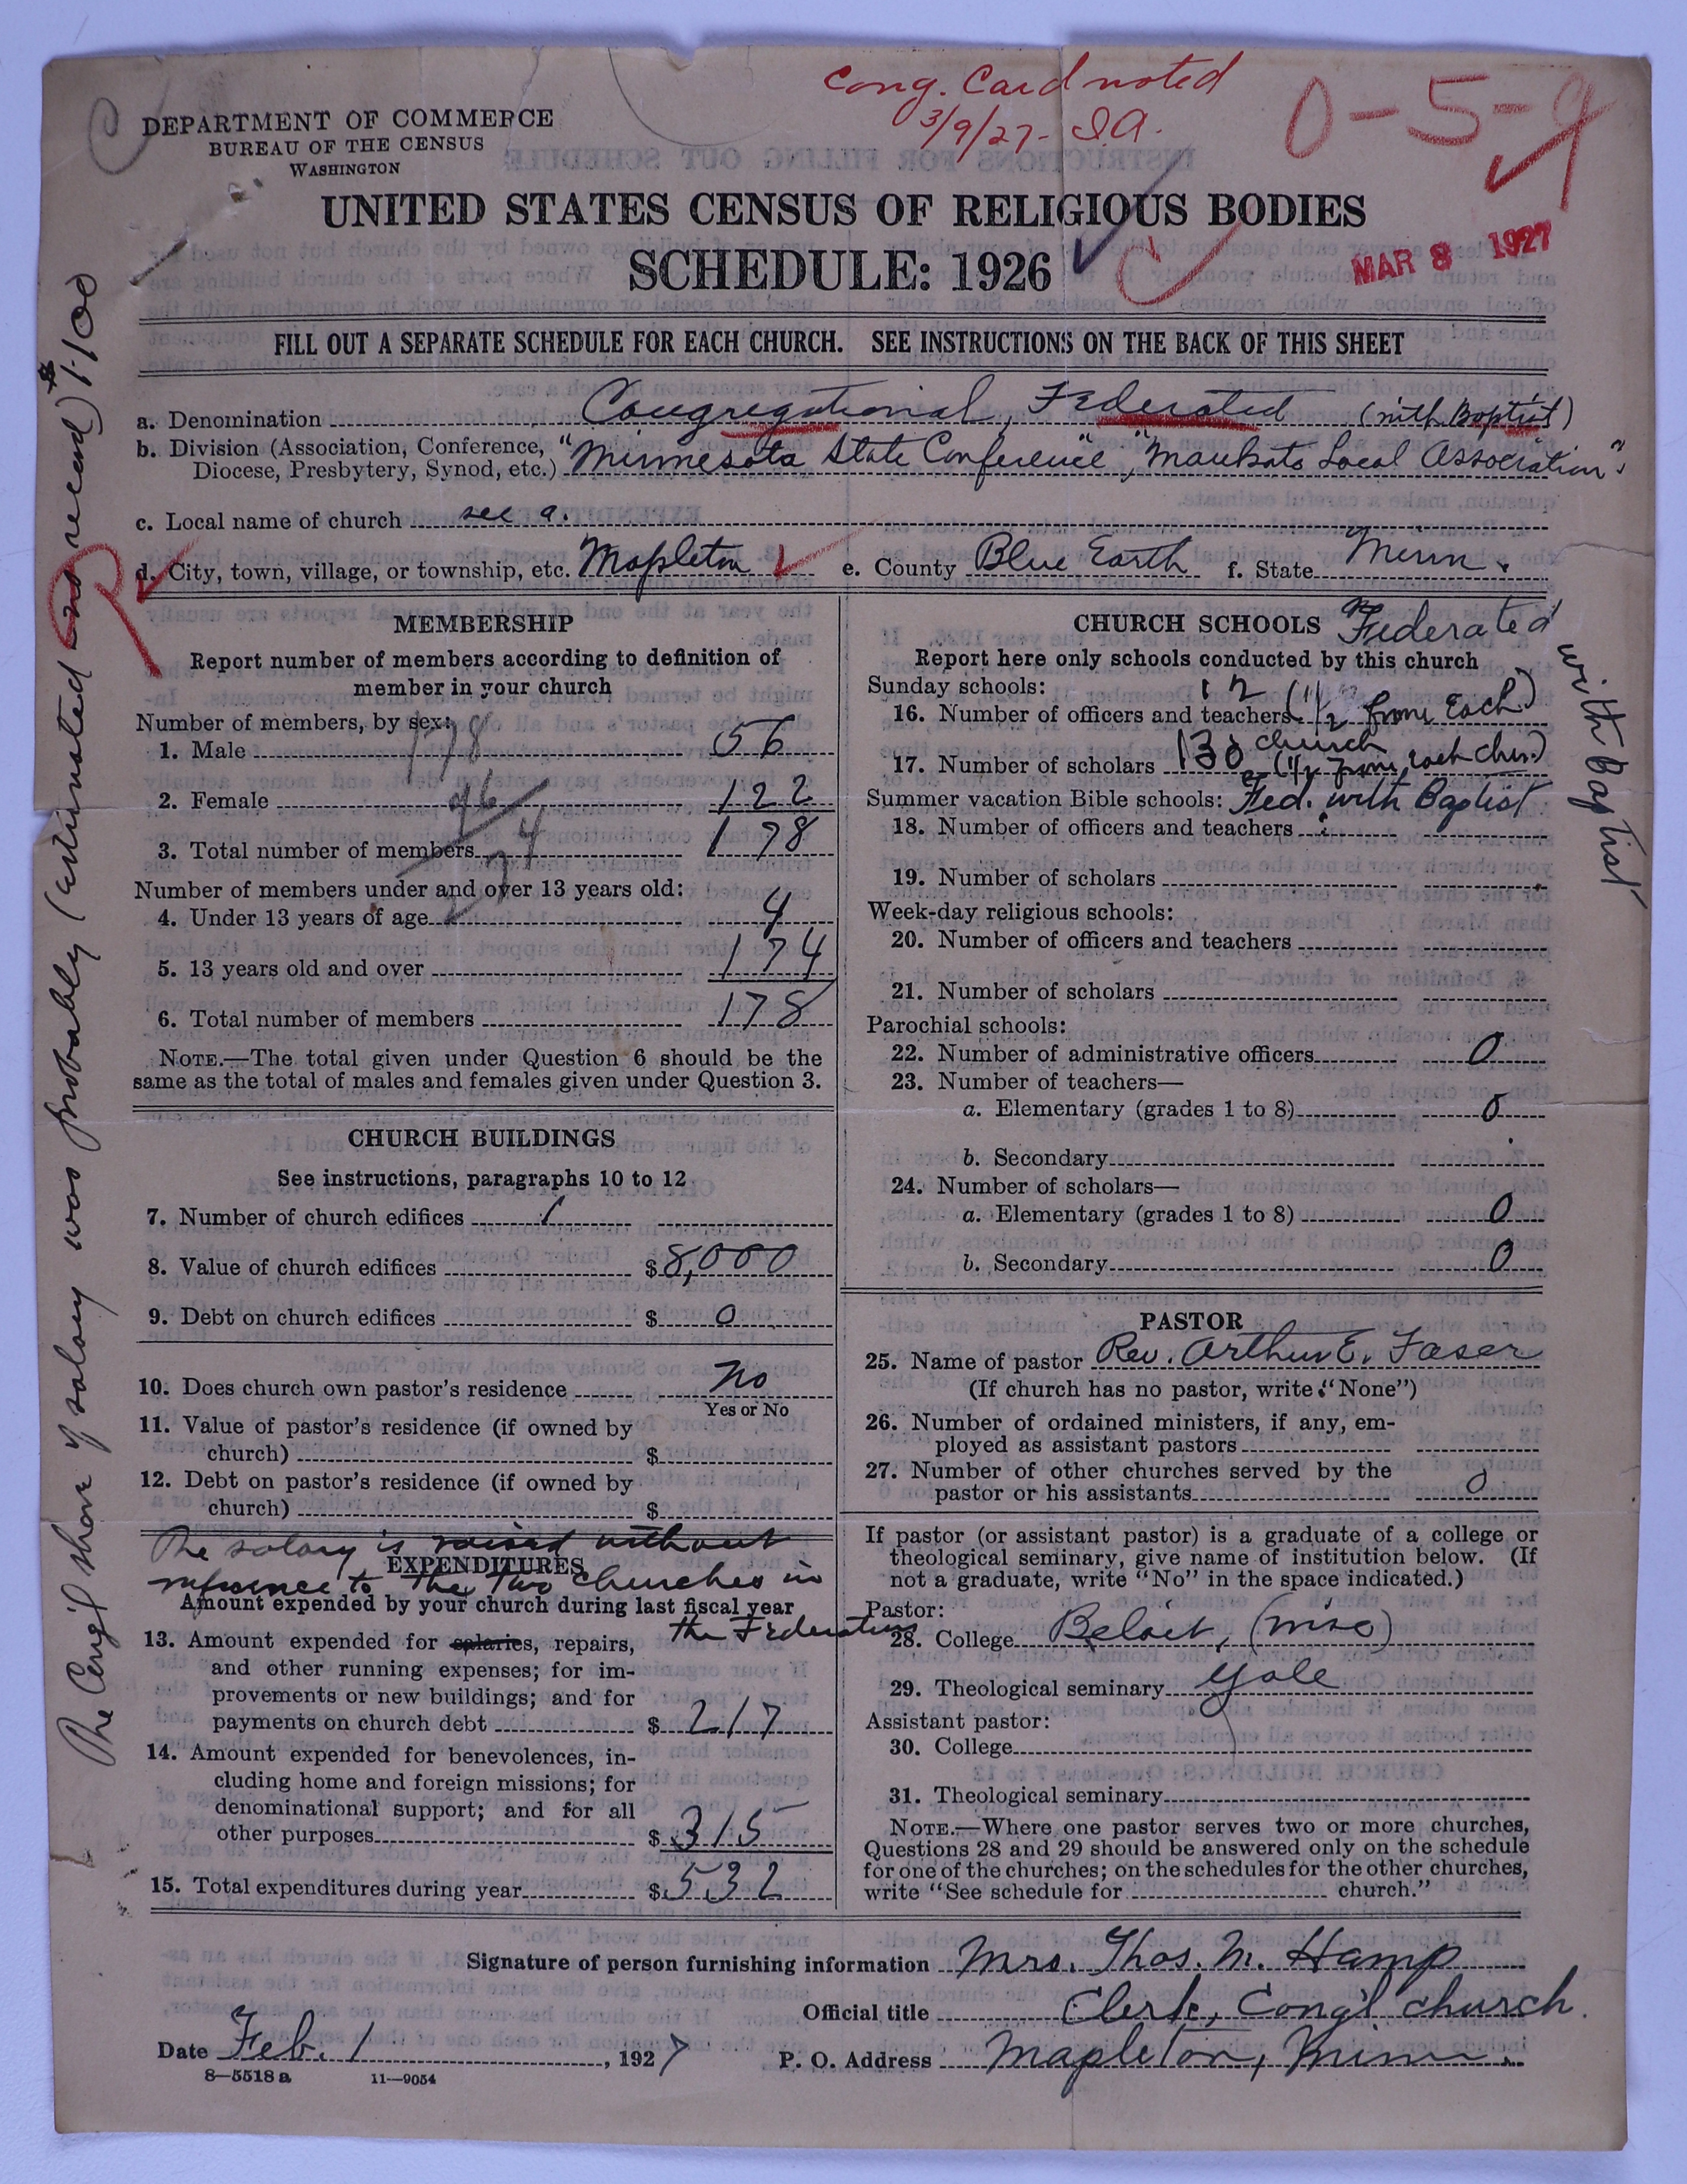 Cong. Card noted
3/9/27- I.A.
0-5-9
DEPARTMENT OF COMMERCE
BUREAU OF THE CENSUS
WASHINGTON
UNITED STATES CENSUS OF RELIGIOUS BODIES
SCHEDULE: 1926
MAR 8 1927
FILL OUT A SEPARATE SCHEDULE FOR EACH CHURCH. SEE INSTRUCTIONS ON THE BACK OF THIS SHEET
a. Denomination Congregational, Federated (with Baptist)
b. Division (Association, Conference, Diocese, Presbytery, Synod, etc.) "Minnesota State Conference", "Mankato Local Association"
c. Local name of church see a.
d. City, town, village, or township, etc. Mapleton e. County Blue Earth f. State Minn.
MEMBERSHIP
Report number of members according to definition of
member in your church
Number of members, by sex:
1. Male 56
2. Female 122
3. Total number of members 178
Number of members under and over 13 years old:
4. Under 13 years of age 4
5. 13 years old and over 174
6. Total number of members 178
NOTE.—The total given under Question 6 should be the
same as the total of males and females given under Question 3.
CHURCH BUILDINGS
See instructions, paragraphs 10 to 12
7. Number of church edifices 1
8. Value of church edifices $8,000
9. Debt on church edifices $ 0
10. Does church own pastor's residence No
Yes or No
11. Value of pastor's residence (if owned by
church) $
12. Debt on pastor's residence (if owned by
church) $
The salary is raised without
EXPENDITURES
reference to the two churches in
the Federation
Amount expended by your church during last fiscal year
13. Amount expended for salaries, repairs,
and other running expenses; for im-
provements or new buildings; and for
payments on church debt $ 217
14. Amount expended for benevolences, in-
cluding home and foreign missions; for
denominational support; and for all
other purposes $ 315
15. Total expenditures during year $ 532
The Cong'l share of salary was probably (estimated no record) $1100
CHURCH SCHOOLS Federated
with Baptist
Report here only schools conducted by this church
Sunday schools:
16. Number of officers and teachers 12 (1/2 from Each)
church
17. Number of scholars 130 (1/2 from each chur.)
Summer vacation Bible schools: Fed. with Baptist
18. Number of officers and teachers
19. Number of scholars
Week-day religious schools:
20. Number of officers and teachers
21. Number of scholars
Parochial schools:
22. Number of administrative officers 0
23. Number of teachers—
a. Elementary (grades 1 to 8) 0
b. Secondary
24. Number of scholars—
a. Elementary (grades 1 to 8) 0
b. Secondary 0
PASTOR
25. Name of pastor Rev. Arthur E. Faser
(If church has no pastor, write "None")
26. Number of ordained ministers, if any, em-
ployed as assistant pastors
27. Number of other churches served by the
pastor or his assistants 0
If pastor (or assistant pastor) is a graduate of a college or
theological seminary, give name of institution below. (If
not a graduate, write "No" in the space indicated.)
Pastor:
28. College Beloit, (Wisc)
29. Theological seminary Yale
Assistant pastor:
30. College
31. Theological seminary
NOTE.—Where one pastor serves two or more churches,
Questions 28 and 29 should be answered only on the schedule
for one of the churches; on the schedules for the other churches,
write "See schedule for church."
Signature of person furnishing information Mrs. Thos. M. Hamp
Official title Clerk, Cong'l church.
Date Feb. 1, 1927 P. O. Address Mapleton, Minn.
8—5518a 11—9054